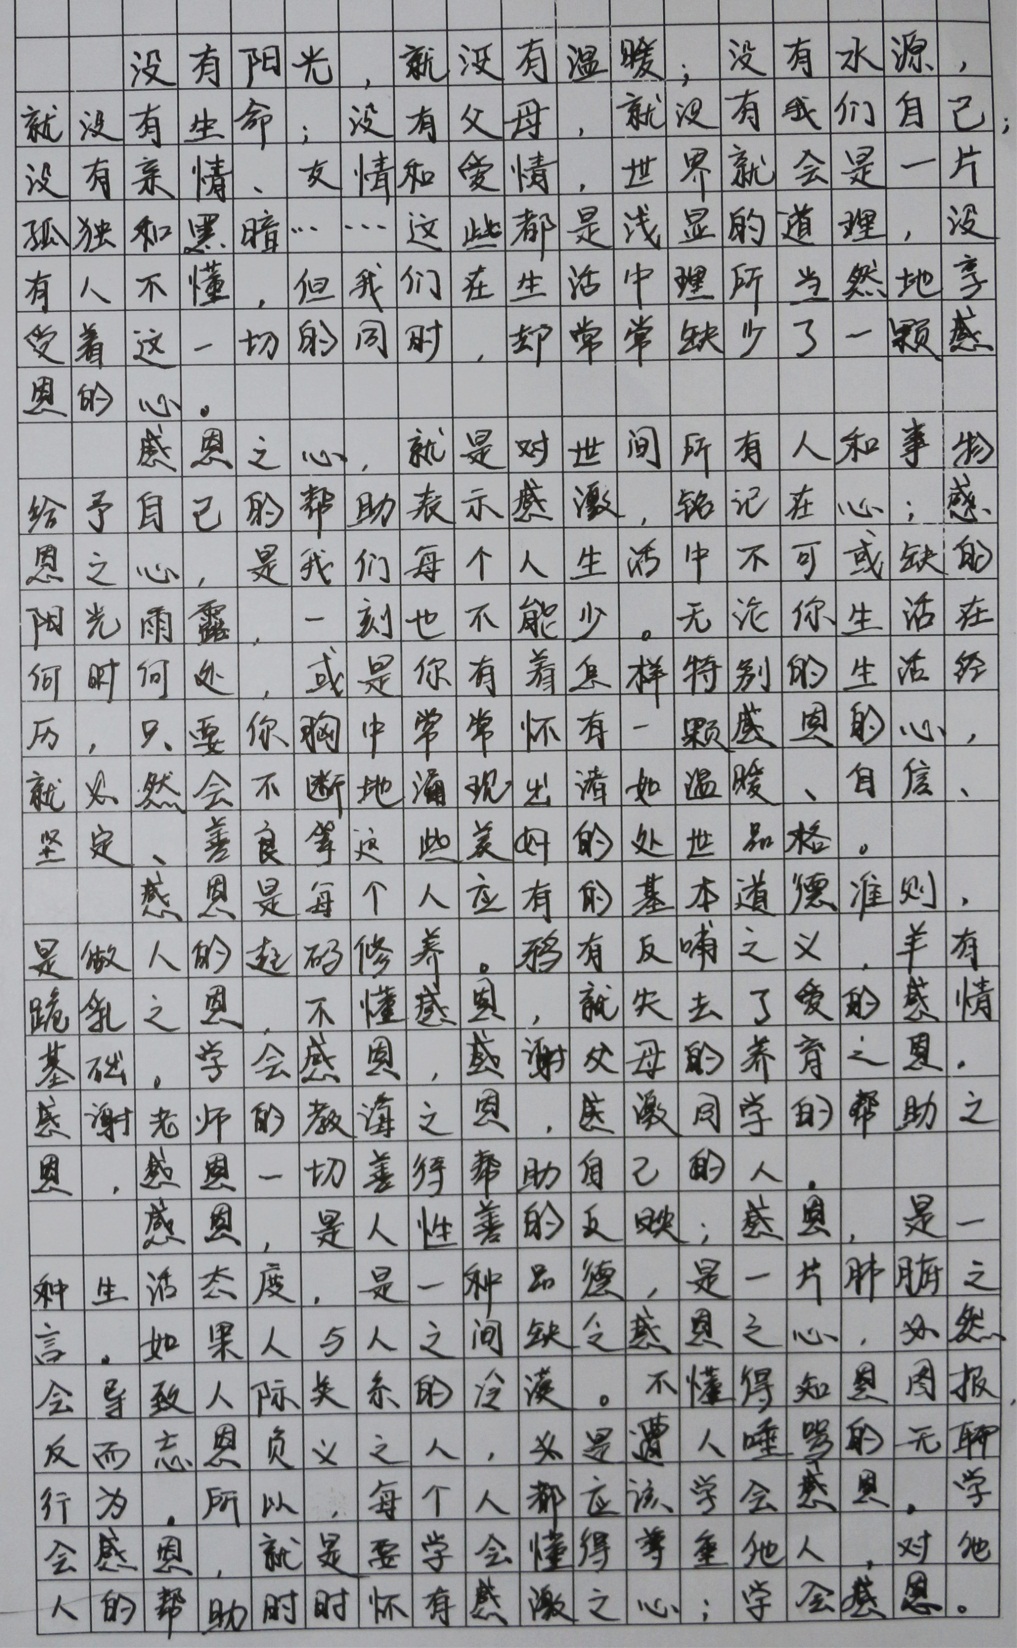 没有阳光，就没有温暖；没有水源，
就没有生命；没有父母，就没有我们自己；
没有亲情、友情和爱情，世界就会是一片
孤独和黑暗……这些都是浅显的道理，没
有人不懂，但我们在生活中理所当然地享
受着这一切的同时，却常常缺少了一颗感
恩的心。
感恩之心，就是对世间所有人和事物
给予自己的帮助表示感激，铭记在心；感
恩之心，是我们每个人生活中不可或缺的
阳光雨露，一刻也不能少。无论你生活在
何时何处，或是你有着怎样特别的生活经
历，只要你胸中常常怀有一颗感恩的心，
就必然会不断地涌现出诸如温暖、自信、
坚定、善良等这些美好的处世品格。
感恩是每个人应有的基本道德准则，
是做人的起码修养。鸦有反哺之义，羊有
跪乳之恩，不懂感恩，就失去了爱的感情
基础。学会感恩，感谢父母的养育之恩，
感谢老师的教诲之恩，感激同学的帮助之
恩，感恩一切善待帮助自己的人。
感恩，是人性善的反映；感恩，是一
种生活态度，是一种品德，是一片肺腑之
言。如果人与人之间缺乏感恩之心，必然
会导致人际关系的冷漠。不懂得知恩图报，
反而忘恩负义之人，必是遭人唾骂的无聊
行为。所以，每个人都应该学会感恩。学
会感恩，就是要学会懂得尊重他人，对他
人的帮助时时怀有感激之心；学会感恩。